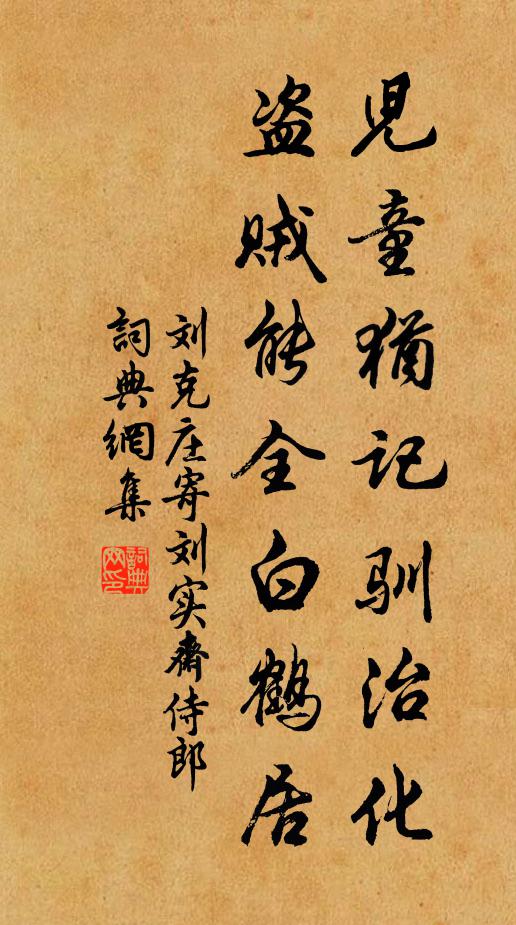 児童猶记驯治化
盗贼能全白鹤居
刘克庄寄刘实斋侍郎
詞典網集
詞典網印